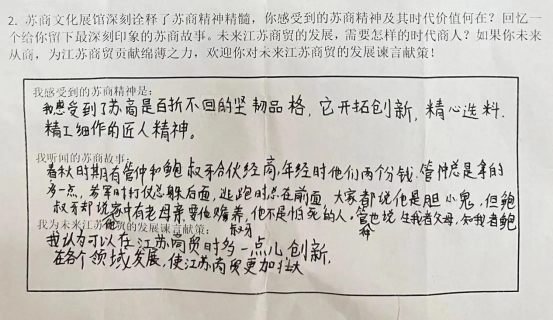 2. 苏商文化展馆深刻诠释了苏商精神精髓，你感受到的苏商精神及其时代价值何在？回忆一
个给你留下最深刻印象的苏商故事。未来江苏商贸的发展，需要怎样的时代商人？如果你未来
从商，为江苏商贸贡献绵薄之力，欢迎你对未来江苏商贸的发展谏言献策！
我感受到的苏商精神是：
我感受到了苏商是百折不回的坚韧品格，它开拓创新，精心选料，
精工细作的匠人精神。
我听闻的苏商故事：
春秋时期有管仲和鲍叔牙合伙经商，年经时他们两个分钱，管仲总是拿的
多一点，若军时打仗总躲后面，逃跑时总在前面，大家都说他是胆小鬼，但鲍
叔牙却说他家中有老母亲要他赡养，他不是怕死的人，管仲也说生我者父母，知我者鲍
叔牙
我为未来江苏商贸谏言献策：
我认为可以在江苏商贸时多一点儿创新，
在各个领域发展，使江苏商贸更加壮大